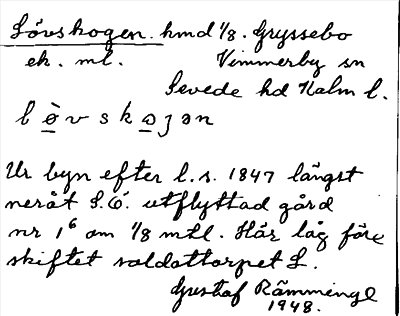 Lövskogen. hmd 1/8. Gryssebo
ek. ml. Vimmerby sn
Sevede hd Kalm l.
l ò̤ v s k o̲ ȷ ə n
Ur byn efter l. s. 1847 längst
neråt S.Ö. utflyttad gård
nr 1⁶ om 1/8 mtl. Här låg före
skiftet soldattorpet L.
Gustaf Rämminge
1948.